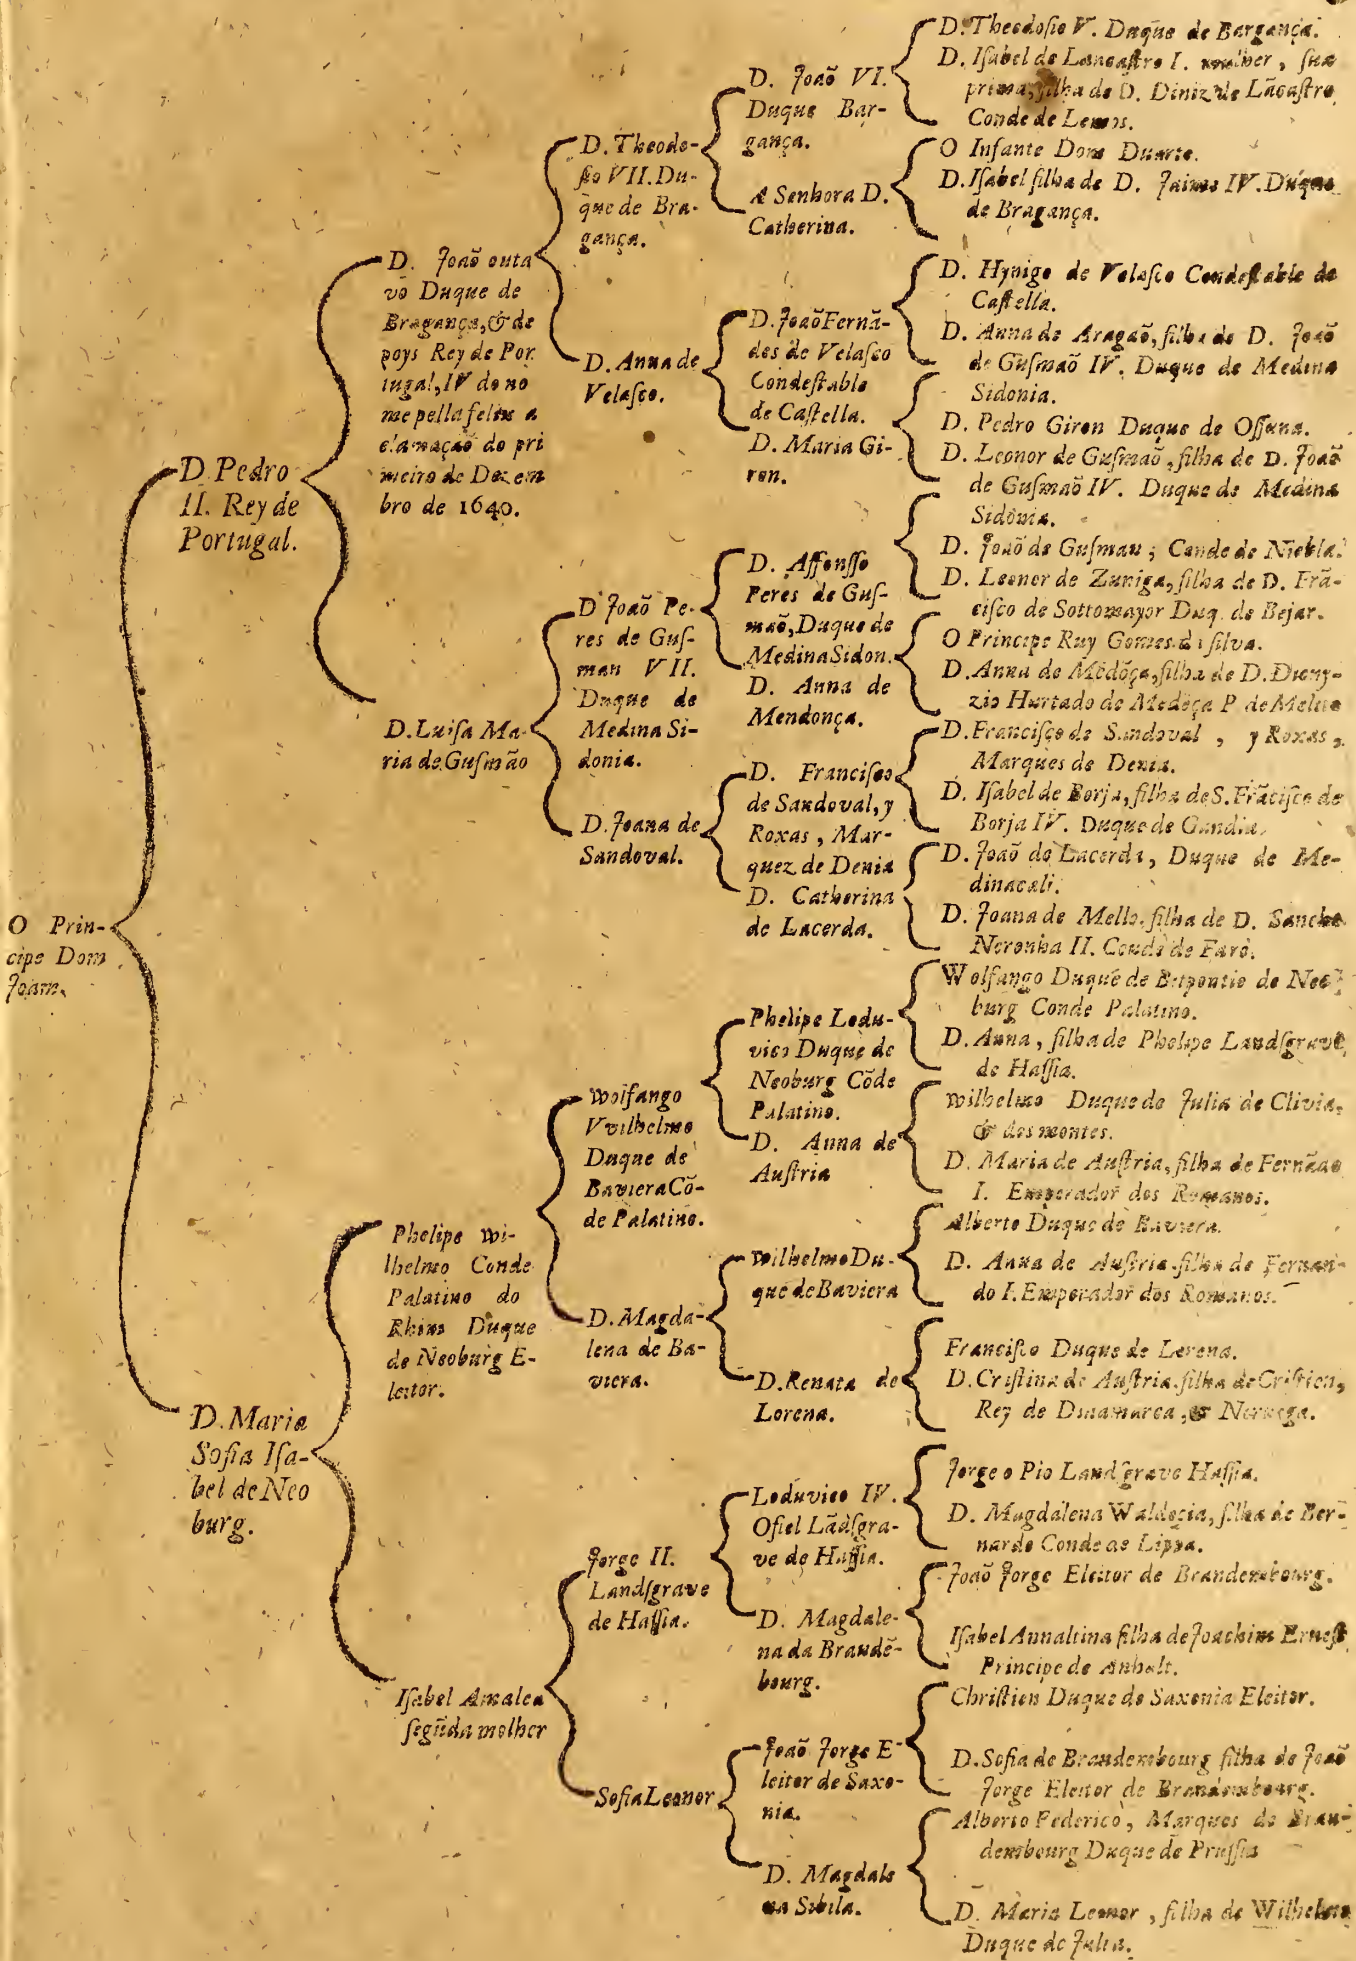 O Prin-
cipe Dom
Joam.
D. Pedro
II. Rey de
Portugal.
D. Maria
Sofia Iſa-
bel de Neo
burg.
D. Joaõ outa
vo Duque de
Bragança, & de
poys Rey de Por
tugal, IV do no
me pella felix a
clamaçaõ do pri
meiro de Dezem
bro de 1640.
D. Luiſa Ma-
ria de Guſmão
Phelipe Wi-
lhelmo Conde
Palatino do
Rhims Duque
de Neoburg E-
leitor.
Iſabel Amalea
ſegũda molher
D. Theodo-
ſio VII. Du-
que de Bra-
gança.
D. Anna de
Velaſco.
D Joaõ Pe-
res de Guſ-
man VII.
Duque de
Medina Si-
donia.
D. Joana de
Sandoval.
Wolfango
Vvilhelmo
Duque de
Baviera Cõ-
de Palatino.
D. Magda-
lena de Ba-
viera.
Jorge II.
Landſgrave
de Haſſia.
Sofia Leonor
D. Joaõ VI.
Duque Bar-
gança.
A Senhora D.
Catherina.
D. Joaõ Fernã-
des de Velaſco
Condeſtable
de Caſtella.
D. Maria Gi-
ron.
D. Affonſſo
Peres de Guſ-
maõ, Duque de
Medina Sidon.
D. Anna de
Mendonça.
D. Franciſco
de Sandoval, y
Roxas, Mar-
quez de Denia
D. Catherina
de Lacerda.
Phelipe Lodu-
vico Duque de
Neoburg Cõde
Palatino.
D. Anna de
Auſtria
Wilhelmo Du-
que de Baviera
D. Renata de
Lorena.
Loduvico IV.
Ofiel Lãdſgra-
ve de Haſſia.
D. Magdale-
na da Brandẽ-
bourg.
Joaõ Jorge E-
leitor de Saxo-
nia.
D. Magdale
na Sibila.
D. Theodoſio V. Duque de Bargança.
D. Iſabel de Lancaſtro I. molher, ſua
prima, filha de D. Diniz de Lãcaſtro
Conde de Lemos.
O Infante Dom Duarte.
D. Iſabel filha de D. Jaime IV. Duque
de Bragança.
D. Hynigo de Velaſco Condeſtable de
Caſtella.
D. Anna de Aragaõ, filha de D. Joaõ
de Guſmaõ IV. Duque de Medina
Sidonia.
D. Pedro Giron Duque de Oſſuna.
D. Leonor de Guſmaõ, filha de D. Joaõ
de Guſmaõ IV. Duque de Medina
Sidonia.
D. Joaõ de Guſman; Conde de Niebla.
D. Leonor de Zuniga, filha de D. Frã-
ciſco de Sottomayor Duq. de Bejar.
O Principe Ruy Gomes de ſilva.
D. Anna de Mẽdõça, filha de D. Diony-
zio Hurtado de Medoça P. de Melito
D. Franciſco de Sandoval, y Roxas,
Marques de Denia.
D. Iſabel de Borja, filha de S. Frãciſco de
Borja IV. Duque de Gandia.
D. Joaõ de Lacerda, Duque de Me-
dinacali.
D. Joana de Mello, filha de D. Sancho
Noronha II. Conde de Faro.
Wolfango Duque de Bitpontio de Neo-
burg Conde Palatino.
D. Anna, filha de Phelipe Landſgrave
de Haſſia.
Wilhelmo Duque de Julia de Clivia,
& dos montes.
D. Maria de Auſtria, filha de Fernãdo
I. Emperador dos Romanos.
Alberto Duque de Baviera.
D. Anna de Auſtria filha de Fernan-
do I. Emperador dos Romanos.
Franciſco Duque de Lorena.
D. Criſtina de Auſtria filha de Criſtien,
Rey de Dinamarca, & Noruega.
Jorge o Pio Landſgrave Haſſia.
D. Magdalena Waldecia, filha de Ber-
nardo Conde de Lippa.
Joaõ Jorge Eleitor de Brandembourg.
Iſabel Annaltina filha de Joachim Erneſt
Principe de Anhalt.
Chriſtien Duque de Saxonia Eleitor.
D. Sofia de Brandembourg filha de Joaõ
Jorge Eleitor de Brandembourg.
Alberto Federico, Marques de Bran-
dembourg Duque de Pruſſia
D. Maria Leonor, filha de Wilhelmo
Duque de Julia.